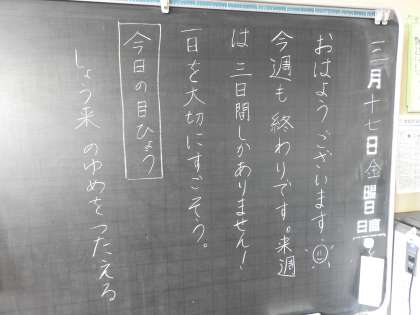 三月十七日金曜日
日直
おはようございます
今週も終わりです。来週
は三日間しかありません!
一日を大切にすごそう。
今日の目ひょう
しょう来のゆめをつたえる